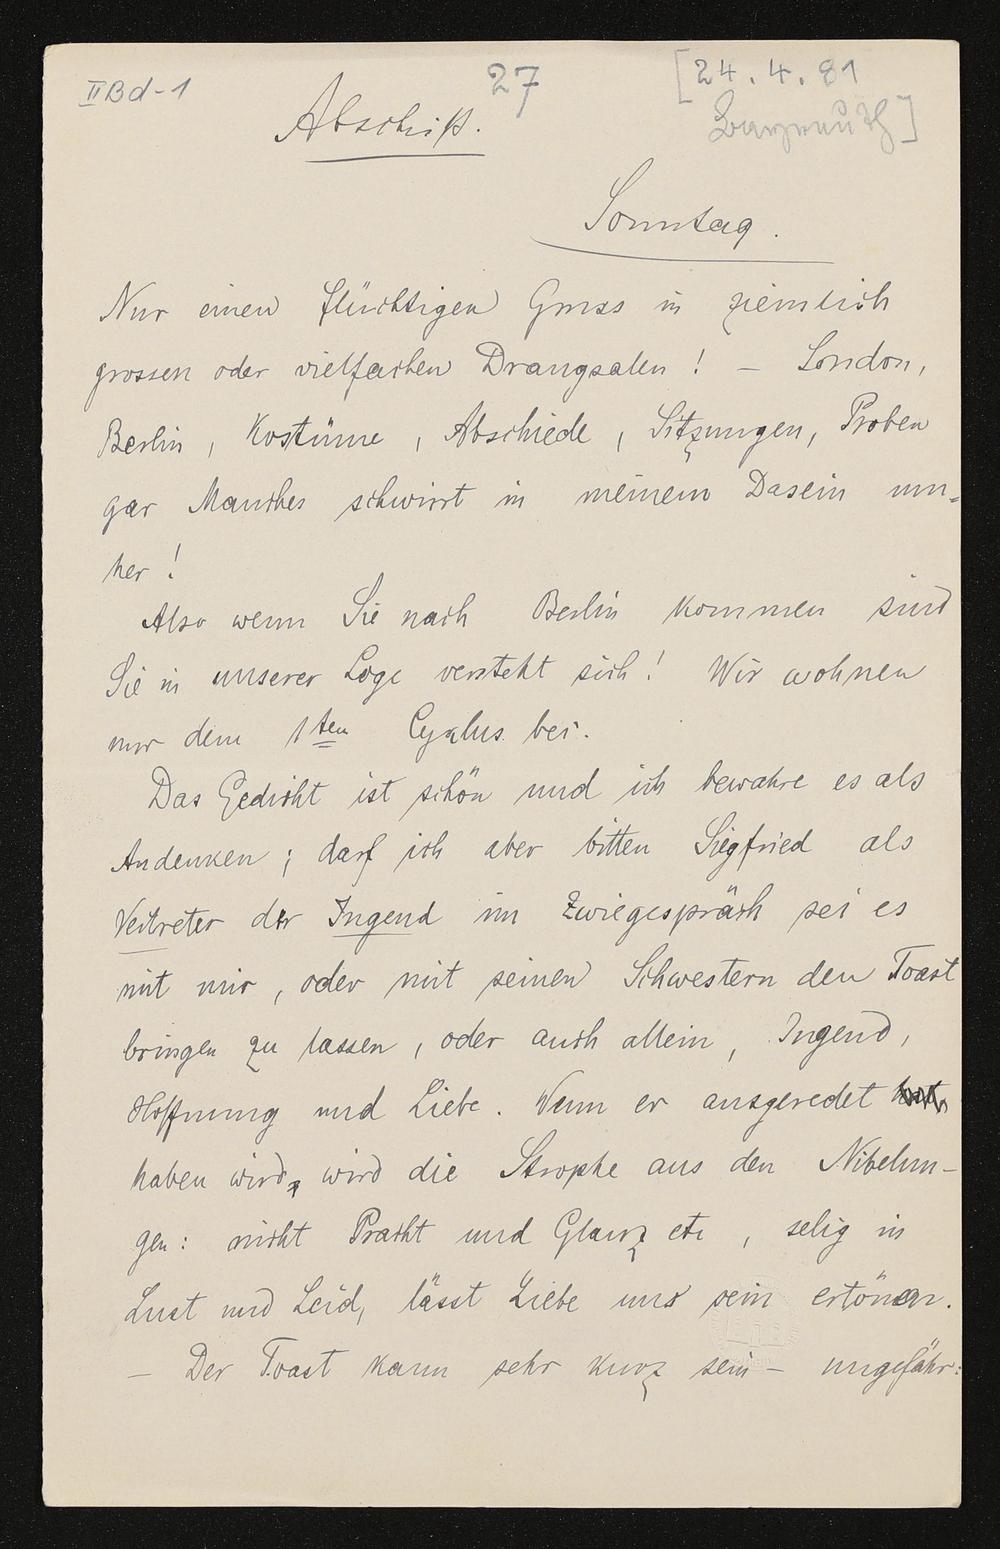 II Bd-1
27
[24. 4. 81
Bayreuth]
Abschrift.
Sonntag.
Nur einen flüchtigen Gruss in ziemlich
grossen oder vielfachen Drangsalen! – London,
Berlin, Kostüme, Abschiede, Sitzungen, Proben
gar Manches schwirrt in meinem Dasein um-
her!
Also wenn Sie nach Berlin kommen sind
Sie in unserer Loge versteht sich! Wir wohnen
nur dem 1ten Cyklus bei.
Das Gedicht ist schön und ich bewahre es als
Andenken; darf ich aber bitten Siegfried als
Vertreter der Jugend im Zwiegespräch sei es
mit mir, oder mit seinen Schwestern den Toast
bringen zu lassen, oder auch allein, Jugend,
Hoffnung und Liebe. Wenn er ausgeredet
haben wird, wird die Strophe aus den Nibelun-
gen: nicht Pracht und Glanz etc, selig in
Lust und Leid, lässt Liebe uns sein ertönen.
– Der Toast kann sehr kurz sein – ungefähr: